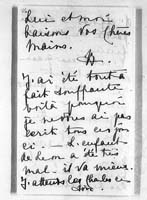 Lui et moi
baisons vos chères
mains.
J'ai été tout à
fait souffrante
voilà pourquoi
je ne vous ai pas
écrit tous ces jours
ci. — L'enfant
de Leon a été très
mal. il va mieux.
J'attends les Charles ce
soir.